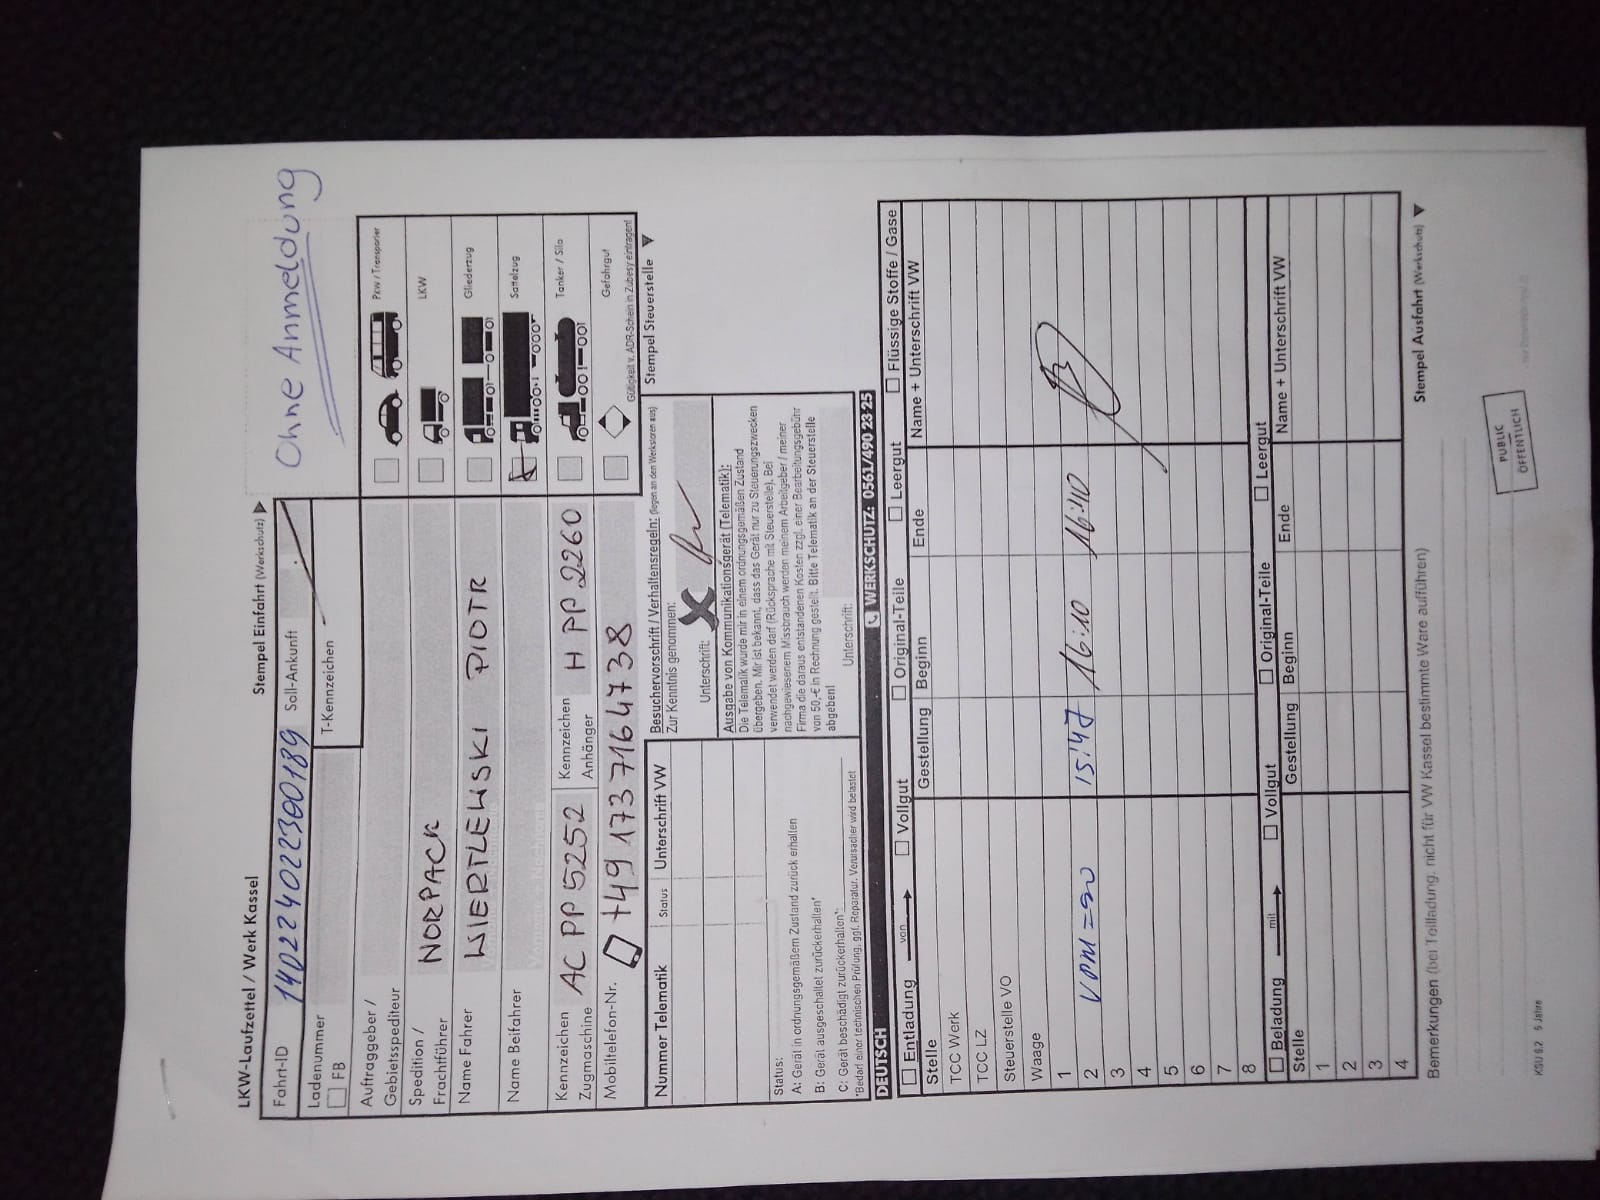 LKW-Laufzettel / Werk Kassel
Stempel Einfahrt (Werkschutz)
Ohne Anmeldung
Fahrt-ID 140224022300189 Soll-Ankunft
Ladenummer
FB
T-Kennzeichen
Auftraggeber /
Gebietsspediteur
Spedition /
Frachtführer NORPACK
Name Fahrer WIERTLEWSKI PIOTR
Name Beifahrer
Kennzeichen
Zugmaschine AC PP 5252 Kennzeichen
Anhänger H PP 2260
Mobiltelefon-Nr. +49 173 7164738
Pkw / Transporter
LKW
Gliederzug
Sattelzug
Tanker / Silo
Gefahrgut
Gültigkeit v. ADR-Schein in Zubesy eintragen!
Nummer Telematik Status Unterschrift VW
Status:
A: Gerät in ordnungsgemäßem Zustand zurück erhalten
B: Gerät ausgeschaltet zurückerhalten*
C: Gerät beschädigt zurückerhalten*:
*Bedarf einer technischen Prüfung, ggf. Reparatur. Verursacher wird belastet
Besuchervorschrift / Verhaltensregeln: (liegen an den Werkstoren aus)
Zur Kenntnis genommen:
Unterschrift: X
Ausgabe von Kommunikationsgerät (Telematik):
Die Telematik wurde mir in einem ordnungsgemäßen Zustand
übergeben. Mir ist bekannt, dass das Gerät nur zu Steuerungszwecken
verwendet werden darf (Rücksprache mit Steuerstelle). Bei
nachgewiesenem Missbrauch werden meinem Arbeitgeber / meiner
Firma die daraus entstandenen Kosten zzgl. einer Bearbeitungsgebühr
von 50,-€ in Rechnung gestellt. Bitte Telematik an der Steuerstelle
abgeben!
Unterschrift:
Stempel Steuerstelle
DEUTSCH WERKSCHUTZ: 0561/490 23 25
Entladung von Vollgut Original-Teile Leergut Flüssige Stoffe / Gase
Stelle Gestellung Beginn Ende Name + Unterschrift VW
TCC Werk
TCC LZ
Steuerstelle VO
Waage
1
2 15:47 16:10 16:40
3
4
5
6
7
8
Beladung mit Vollgut Original-Teile Leergut
Stelle Gestellung Beginn Ende Name + Unterschrift VW
1
2
3
4
Bemerkungen (bei Teilladung: nicht für VW Kassel bestimmte Ware aufführen)
Stempel Ausfahrt (Werkschutz)
PUBLIC
ÖFFENTLICH
KSU 9.2 5 Jahre